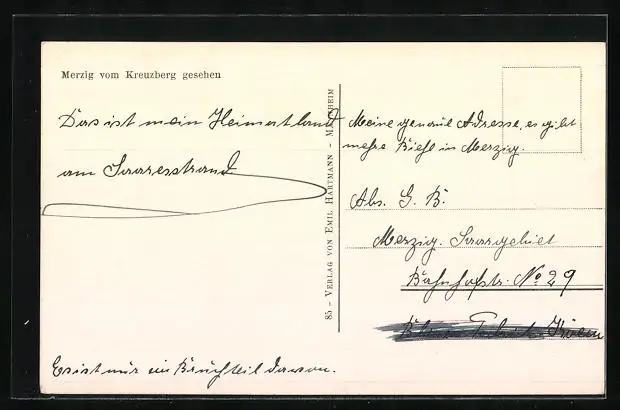 Merzig vom Kreuzberg gesehen
Das ist mein Heimatland
am Saaresstrand
Es ist nur ein Bruchteil davon.
85 - VERLAG VON EMIL HARTMANN - MANNHEIM
Meine genaue Adresse, es gibt
mehre Biehl in Merzig.
Abs. G. B.
Merzig. Saargebiet
Bahnhofstr. No 29